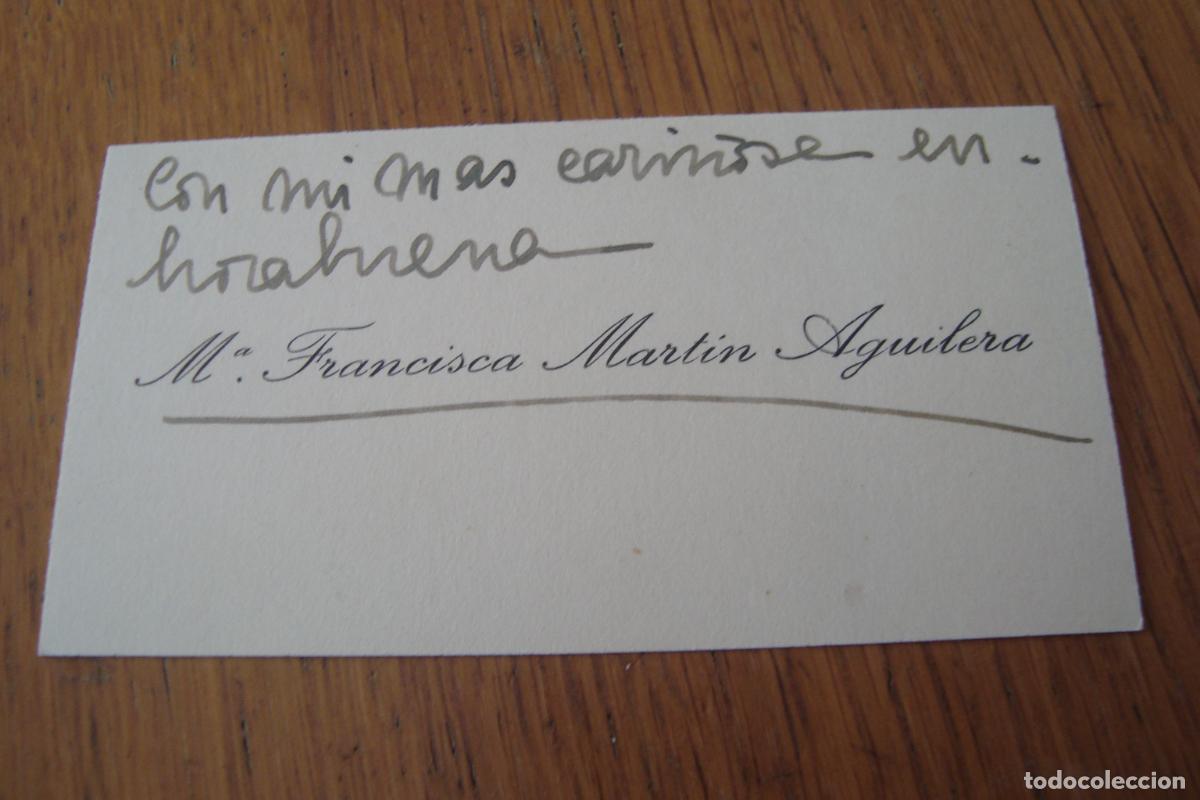 Con mi mas cariñosa en-
horabuena
Mª. Francisca Martín Aguilera
todocoleccion